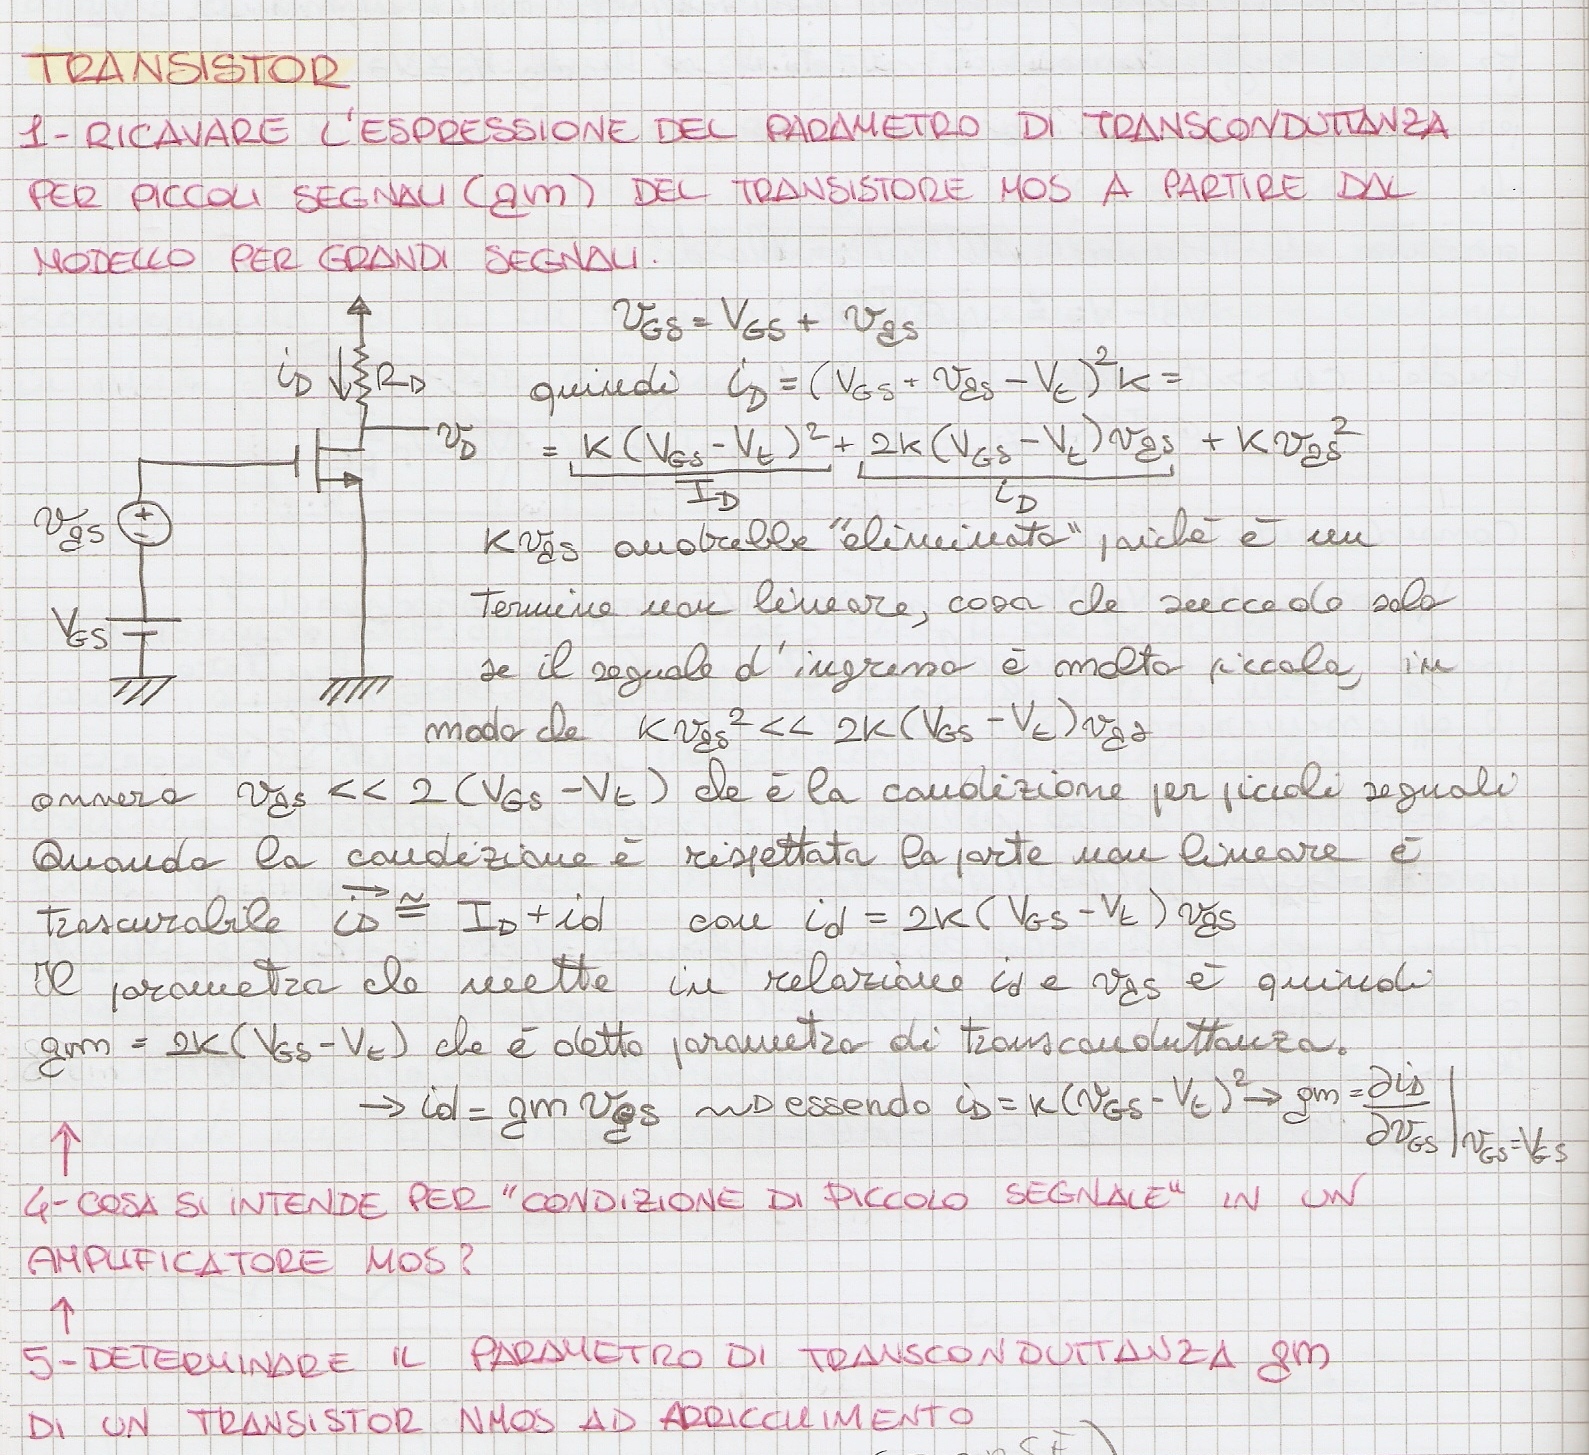 TRANSISTOR
1-RICAVARE L'ESPRESSIONE DEL PARAMETRO DI TRANSCONDUTTANZA
PER PICCOLI SEGNALI (gm) DEL TRANSISTORE MOS A PARTIRE DAL
MODELLO PER GRANDI SEGNALI.
vGS = VGS + vgs
iD RD
quindi iD = (VGS + vgs - Vt)²K =
vD
= K(VGS - Vt)² + 2K(VGS - Vt)vgs + Kvgs²
ID iD
vgs
+
-
Kvgs andrebbe "eliminato" poiché è un
termine non lineare, cosa che succede solo
VGS
se il segnale d'ingresso è molto piccolo, in
modo che Kvgs² << 2K(VGS - Vt)vgs
ovvero vgs << 2(VGS - Vt) che è la condizione per piccoli segnali
Quando la condizione è rispettata la parte non lineare è
trascurabile → iD ≅ ID + id con id = 2K(VGS - Vt)vgs
Il parametro che mette in relazione id e vgs è quindi
gm = 2K(VGS - Vt) che è detto parametro di transconduttanza.
→ id = gm vgs ~D essendo iD = K(vGS - Vt)² → gm = ∂iD/∂vGS | vGS=VGS
↑
4-COSA SI INTENDE PER "CONDIZIONE DI PICCOLO SEGNALE" IN UN
AMPLIFICATORE MOS?
↑
5-DETERMINARE IL PARAMETRO DI TRANSCONDUTTANZA gm
DI UN TRANSISTOR NMOS AD ARRICCHIMENTO